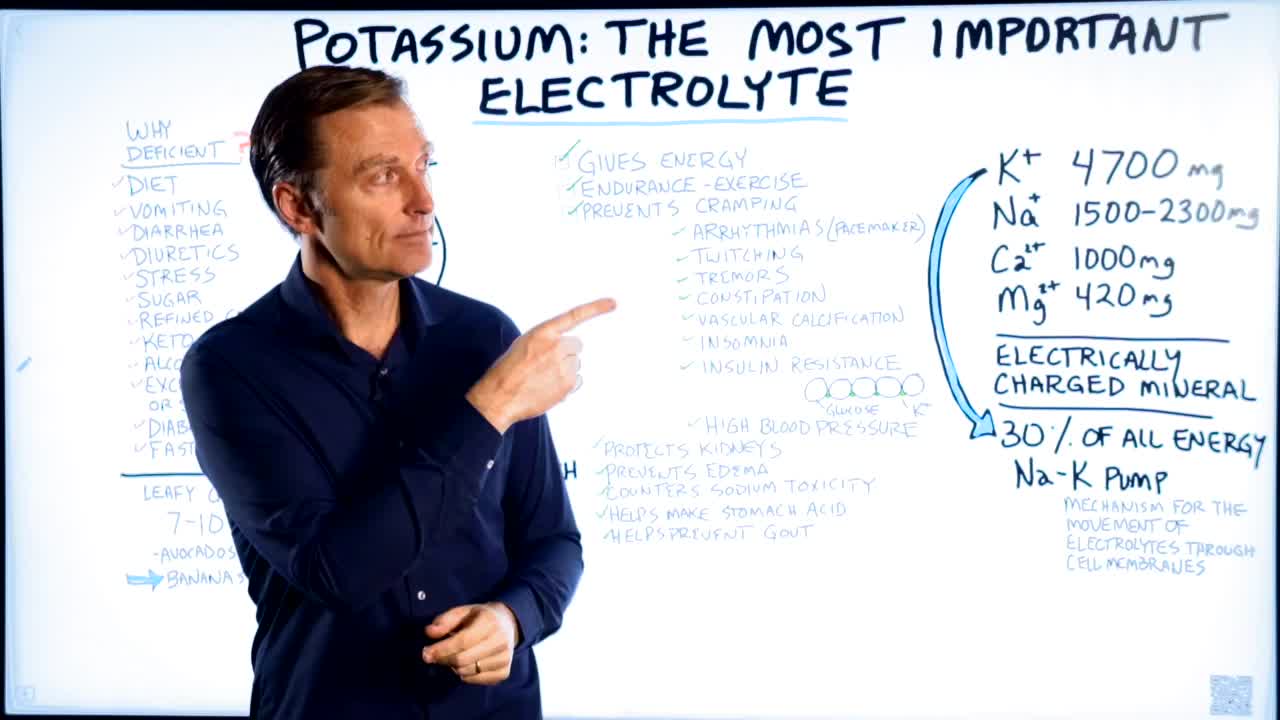 POTASSIUM: THE MOST IMPORTANT
ELECTROLYTE
WHY
DEFICIENT ?
DIET
VOMITING
DIARRHEA
DIURETICS
STRESS
SUGAR
REFINED
KETO
FAST
LEAFY
7-10
-AVOCADOS
BANANAS
GIVES ENERGY
ENDURANCE-EXERCISE
PREVENTS CRAMPING
ARRHYTHMIAS (PACEMAKER)
TWITCHING
TREMORS
CONSTIPATION
VASCULAR CALCIFICATION
INSOMNIA
INSULIN RESISTANCE
GLUCOSE K+
HIGH BLOOD PRESSURE
PROTECTS KIDNEYS
PREVENTS EDEMA
COUNTERS SODIUM TOXICITY
HELPS MAKE STOMACH ACID
HELPS PREVENT GOUT
K+ 4700 mg
Na+ 1500-2300mg
Ca2+ 1000mg
Mg2+ 420 mg
ELECTRICALLY
CHARGED MINERAL
30% OF ALL ENERGY
Na-K PUMP
MECHANISM FOR THE
MOVEMENT OF
ELECTROLYTES THROUGH
CELL MEMBRANES